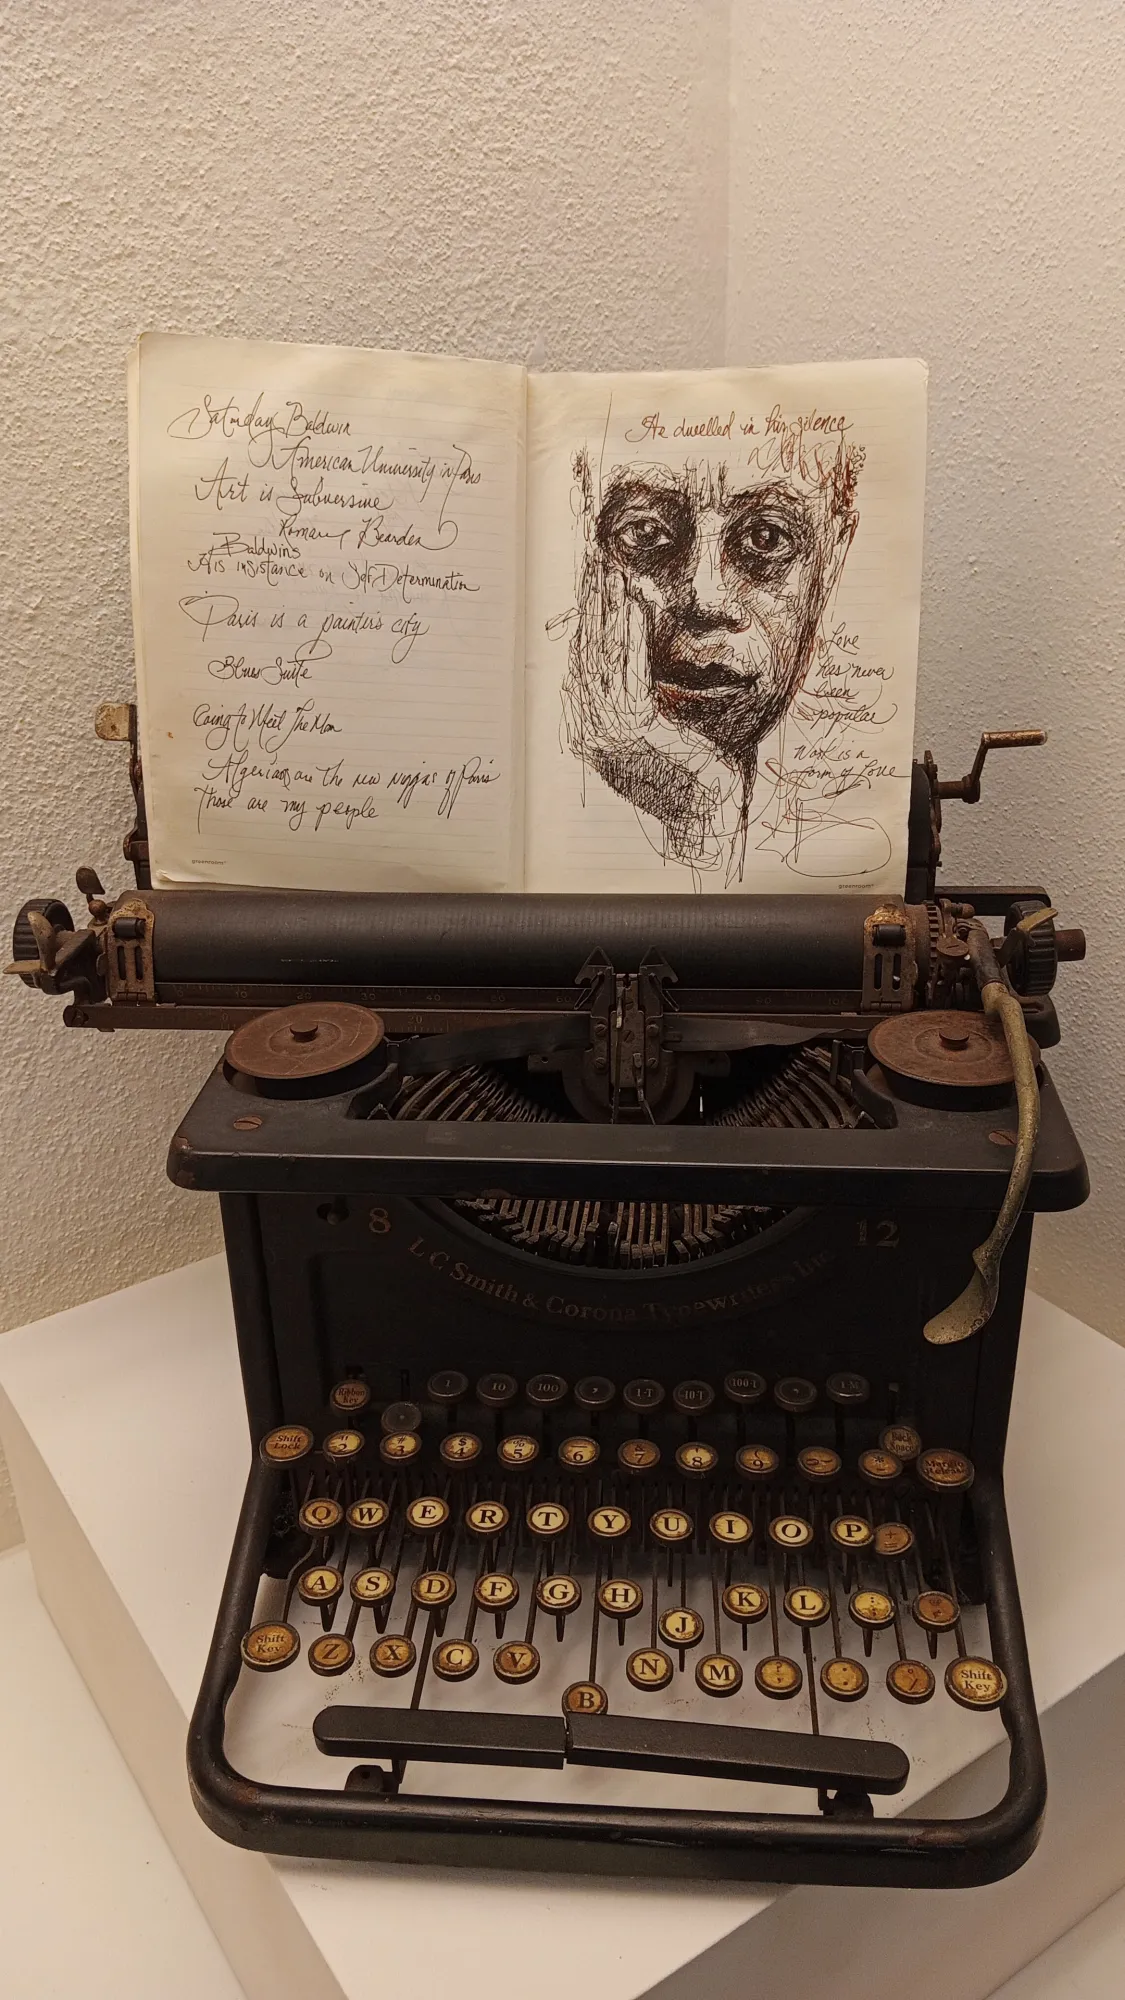 Saturday Baldwin
American University in Paris
Art is Subversive
Romare Bearden
Baldwins
His insistance on Self Determination
Paris is a painter's city
Blues Suite
Going to Meet The Man
Algerians are the new niggas of Paris
Those are my people
greenroom
He dwelled in his silence
Love
has never
been
popular
Work is a
form of Love
greenroom
10 20 30 40 50 60 90 100
8 12
L C Smith & Corona Typewriters Inc
Ribbon Key 1 10 100 , 1-T 10-T 100-T , 1-M
Shift Lock " 2 # 3 $ 4 % 5 _ 6 & 7 ' 8 ( 9 Back Space Margin Release
Q W E R T Y U I O P
A S D F G H J K L
Shift Key Z X C V B N M Shift Key